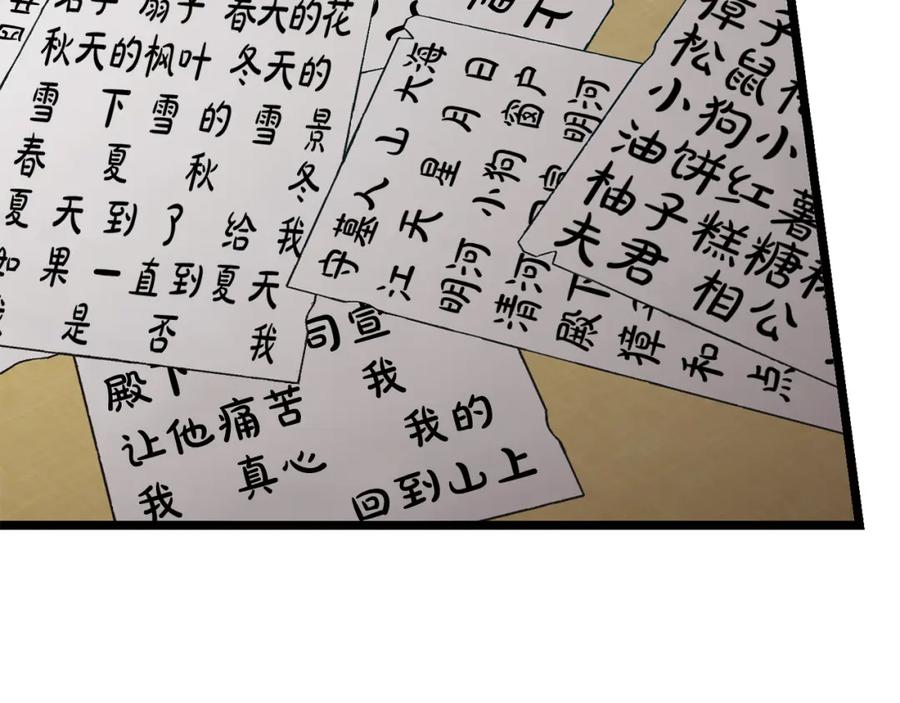 扇子 春天的花
秋天的枫叶 冬天的
雪 下雪的雪景
春 夏 秋 冬
夏天到了 给我
如果一直到夏天
是否 我
守墓人山大海
江天星月日
明河 小狗 窗户
清河 明河
殿下
獐 和 点
松鼠
小狗 小
油饼 红薯
柚子 糕 糖
夫君 相公
司宣
殿下 我
让他痛苦 我的
我 真心 回到山上